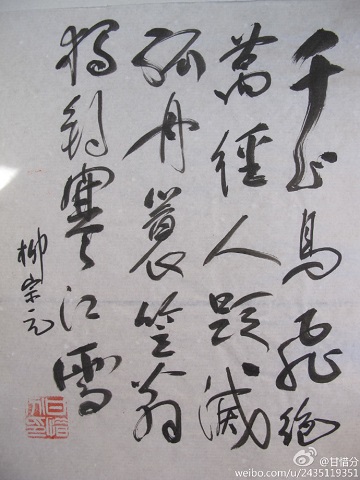 千山鳥飛絕
萬徑人蹤滅
孤舟蓑笠翁
獨釣寒江雪
柳宗元
@甘惜分
weibo.com/u/2435119351